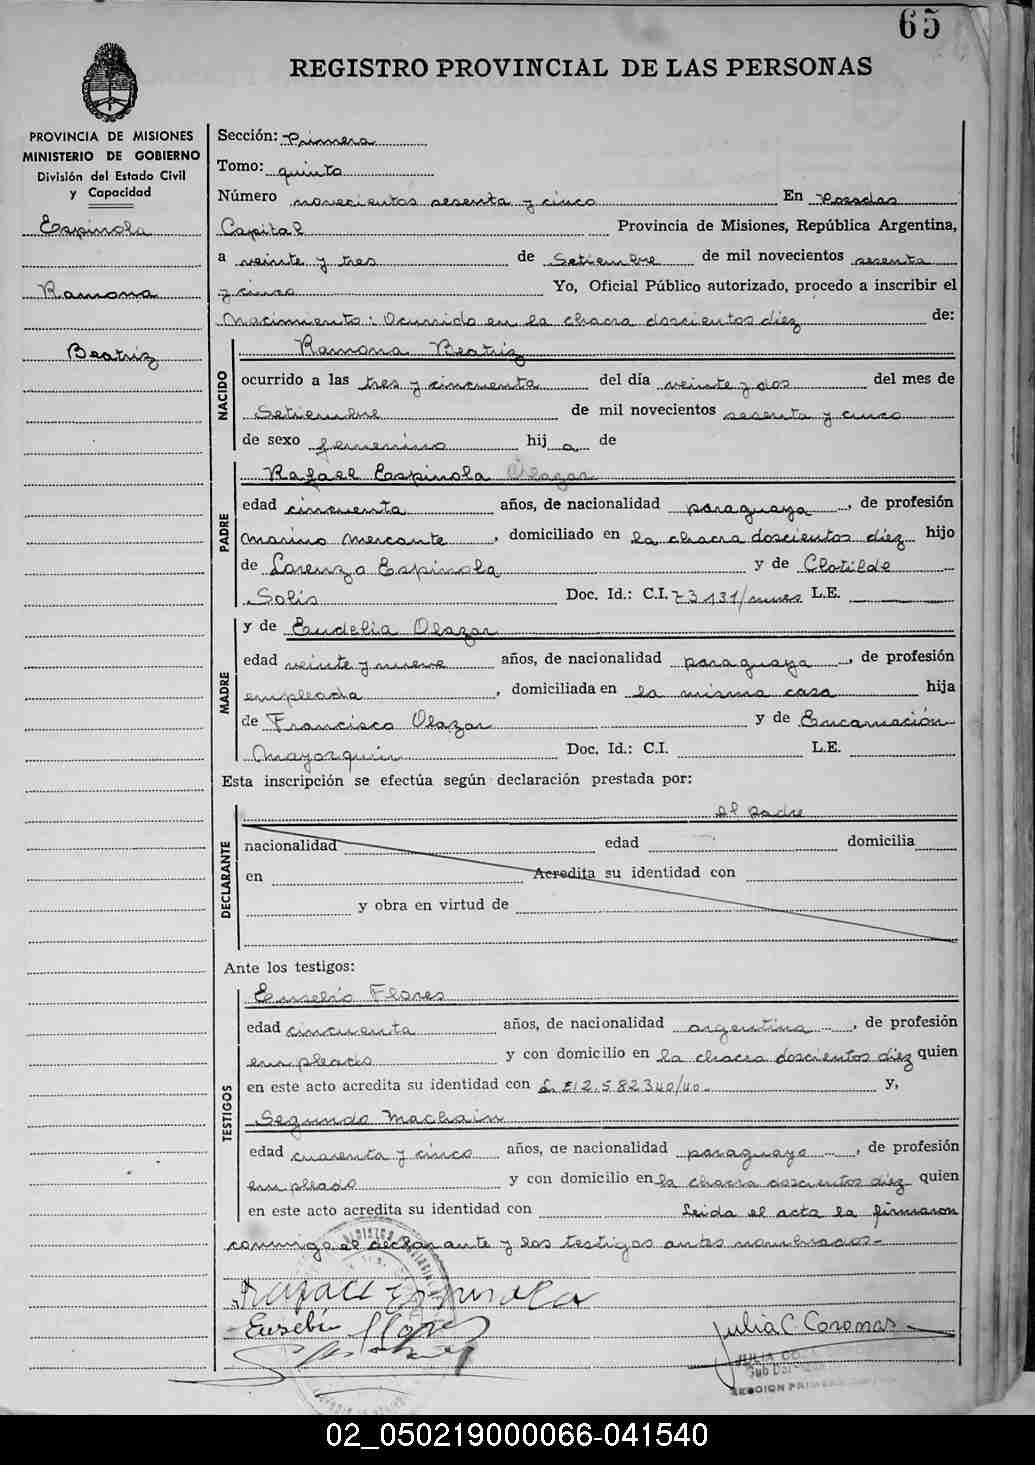 65
REGISTRO PROVINCIAL DE LAS PERSONAS
PROVINCIA DE MISIONES
MINISTERIO DE GOBIERNO
División del Estado Civil
y Capacidad
Espinola
Ramona
Beatriz
Sección: Primera
Tomo: quinto
Número novecientos sesenta y cinco En Posadas
Capital Provincia de Misiones, República Argentina,
a veinte y tres de Setiembre de mil novecientos sesenta
y cinco Yo, Oficial Público autorizado, procedo a inscribir el
Nacimiento: Ocurrido en la chacra doscientos diez de:
NACIDO
Ramona Beatriz
ocurrido a las tres y cincuenta del día veinte y dos del mes de
Setiembre de mil novecientos sesenta y cinco
de sexo femenino hij a de
PADRE
Rafael Espinola Olazar
edad cincuenta años, de nacionalidad paraguaya, de profesión
Marino Mercante, domiciliado en la chacra doscientos diez hijo
de Lorenzo Espinola y de Clotilde
Solis Doc. Id.: C.I. 73131/ L.E.
MADRE
y de Eudelia Olazar
edad veinte y nueve años, de nacionalidad paraguaya, de profesión
empleada, domiciliada en la misma casa hija
de Francisco Olazar y de Encarnación
Mayorquin Doc. Id.: C.I. L.E.
Esta inscripción se efectúa según declaración prestada por:
DECLARANTE
el padre
nacionalidad edad domicilia
en Acredita su identidad con
y obra en virtud de
Ante los testigos:
TESTIGOS
Eusebio Flores
edad cincuenta años, de nacionalidad argentina, de profesión
empleado y con domicilio en la chacra doscientos diez quien
en este acto acredita su identidad con L.E 2.582340/40. y,
Segundo Machain
edad cuarenta y cinco años, de nacionalidad paraguayo, de profesión
empleado y con domicilio en la chacra doscientos diez quien
en este acto acredita su identidad con Leida el acta la firmaron
conmigo el declarante y los testigos antes nombrados-
Rafael Espinola
Eusebio Flores
Julia C. Coronas
JULIA
Sub
SECCION PRIMERA
02_050219000066-041540